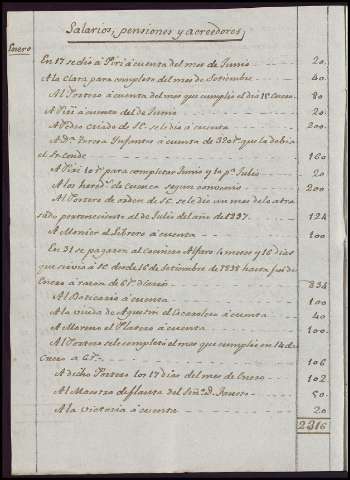 Salarios, pensiones y acreedores
Enero
En 17 se dió á Piri á cuenta del mes de Junio 20.
A la Clara para completo del mes de Setiembre 40.
Al Portero á cuenta del mes que cumplió el dia 1º Enero 80
A Piri á cuenta del de Junio 20
A Pedro criado de SE. se le dió á cuenta 200.
A Dª Teresa Infantas á cuenta de 320 rs que la debia
el Sr. Conde 160
A Piri 20 rs para completar Junio y la pª Julio 20
A los hereds de Cuenca segun convenio 200
Al Portero de orden de SE. se le dió un mes de lo atra
sado perteneciente al de Julio del año de 1837. 124
A Monier el Librero á cuenta 100
En 31 se pagaron al Cocinero Alfaro 4 meses y 16 dias
que sirvió á SE. desde 16 de Setiembre de 1838 hasta fin de
Enero á razon de 6 rs diarios 834
Al Boticario á cuenta 100
A la viuda de Agustin el Cocorolero á cuenta 40
A Moreno el Platero á cuenta 100.
Al Portero se le completó el mes que cumplió en 14 de
Enero á 6 rs 106
A dicho Portero los 17 dias del mes de Enero 102
Al Maestro de flauta del Señ. D. 80.
A la Victoria á cuenta 20
2316